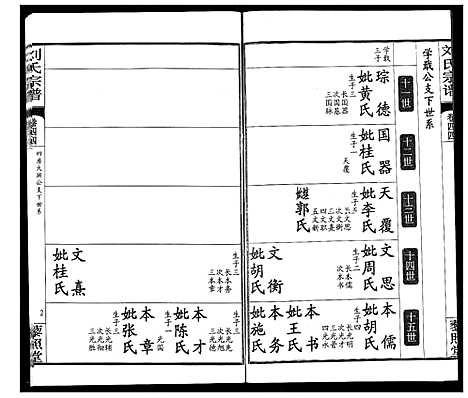 刘氏宗谱
卷四
黎照堂
学载公支下世系
十一世
十二世
十三世
十四世
十五世
学载
三子
琮德
妣黄氏
生子三
长国器
次国基
三国脉
国器
妣桂氏
生子一
天覆
天覆
妣李氏
继郭氏
生子五
长文思
次文衡
三文熹
四文职
五文新
文思
妣周氏
生子二
长本儒
次本书
本儒
妣胡氏
生子四
长光明
次光晋
三光普
四光永
本书
妣王氏
文衡
妣胡氏
生子三
长本务
次本才
三本章
本务
妣施氏
生子三
长光先
次光旭
三光德
本才
妣陈氏
生子一
光国
文熹
妣桂氏
本章
妣张氏
生子三
刘氏宗谱
卷四
2
黎照堂